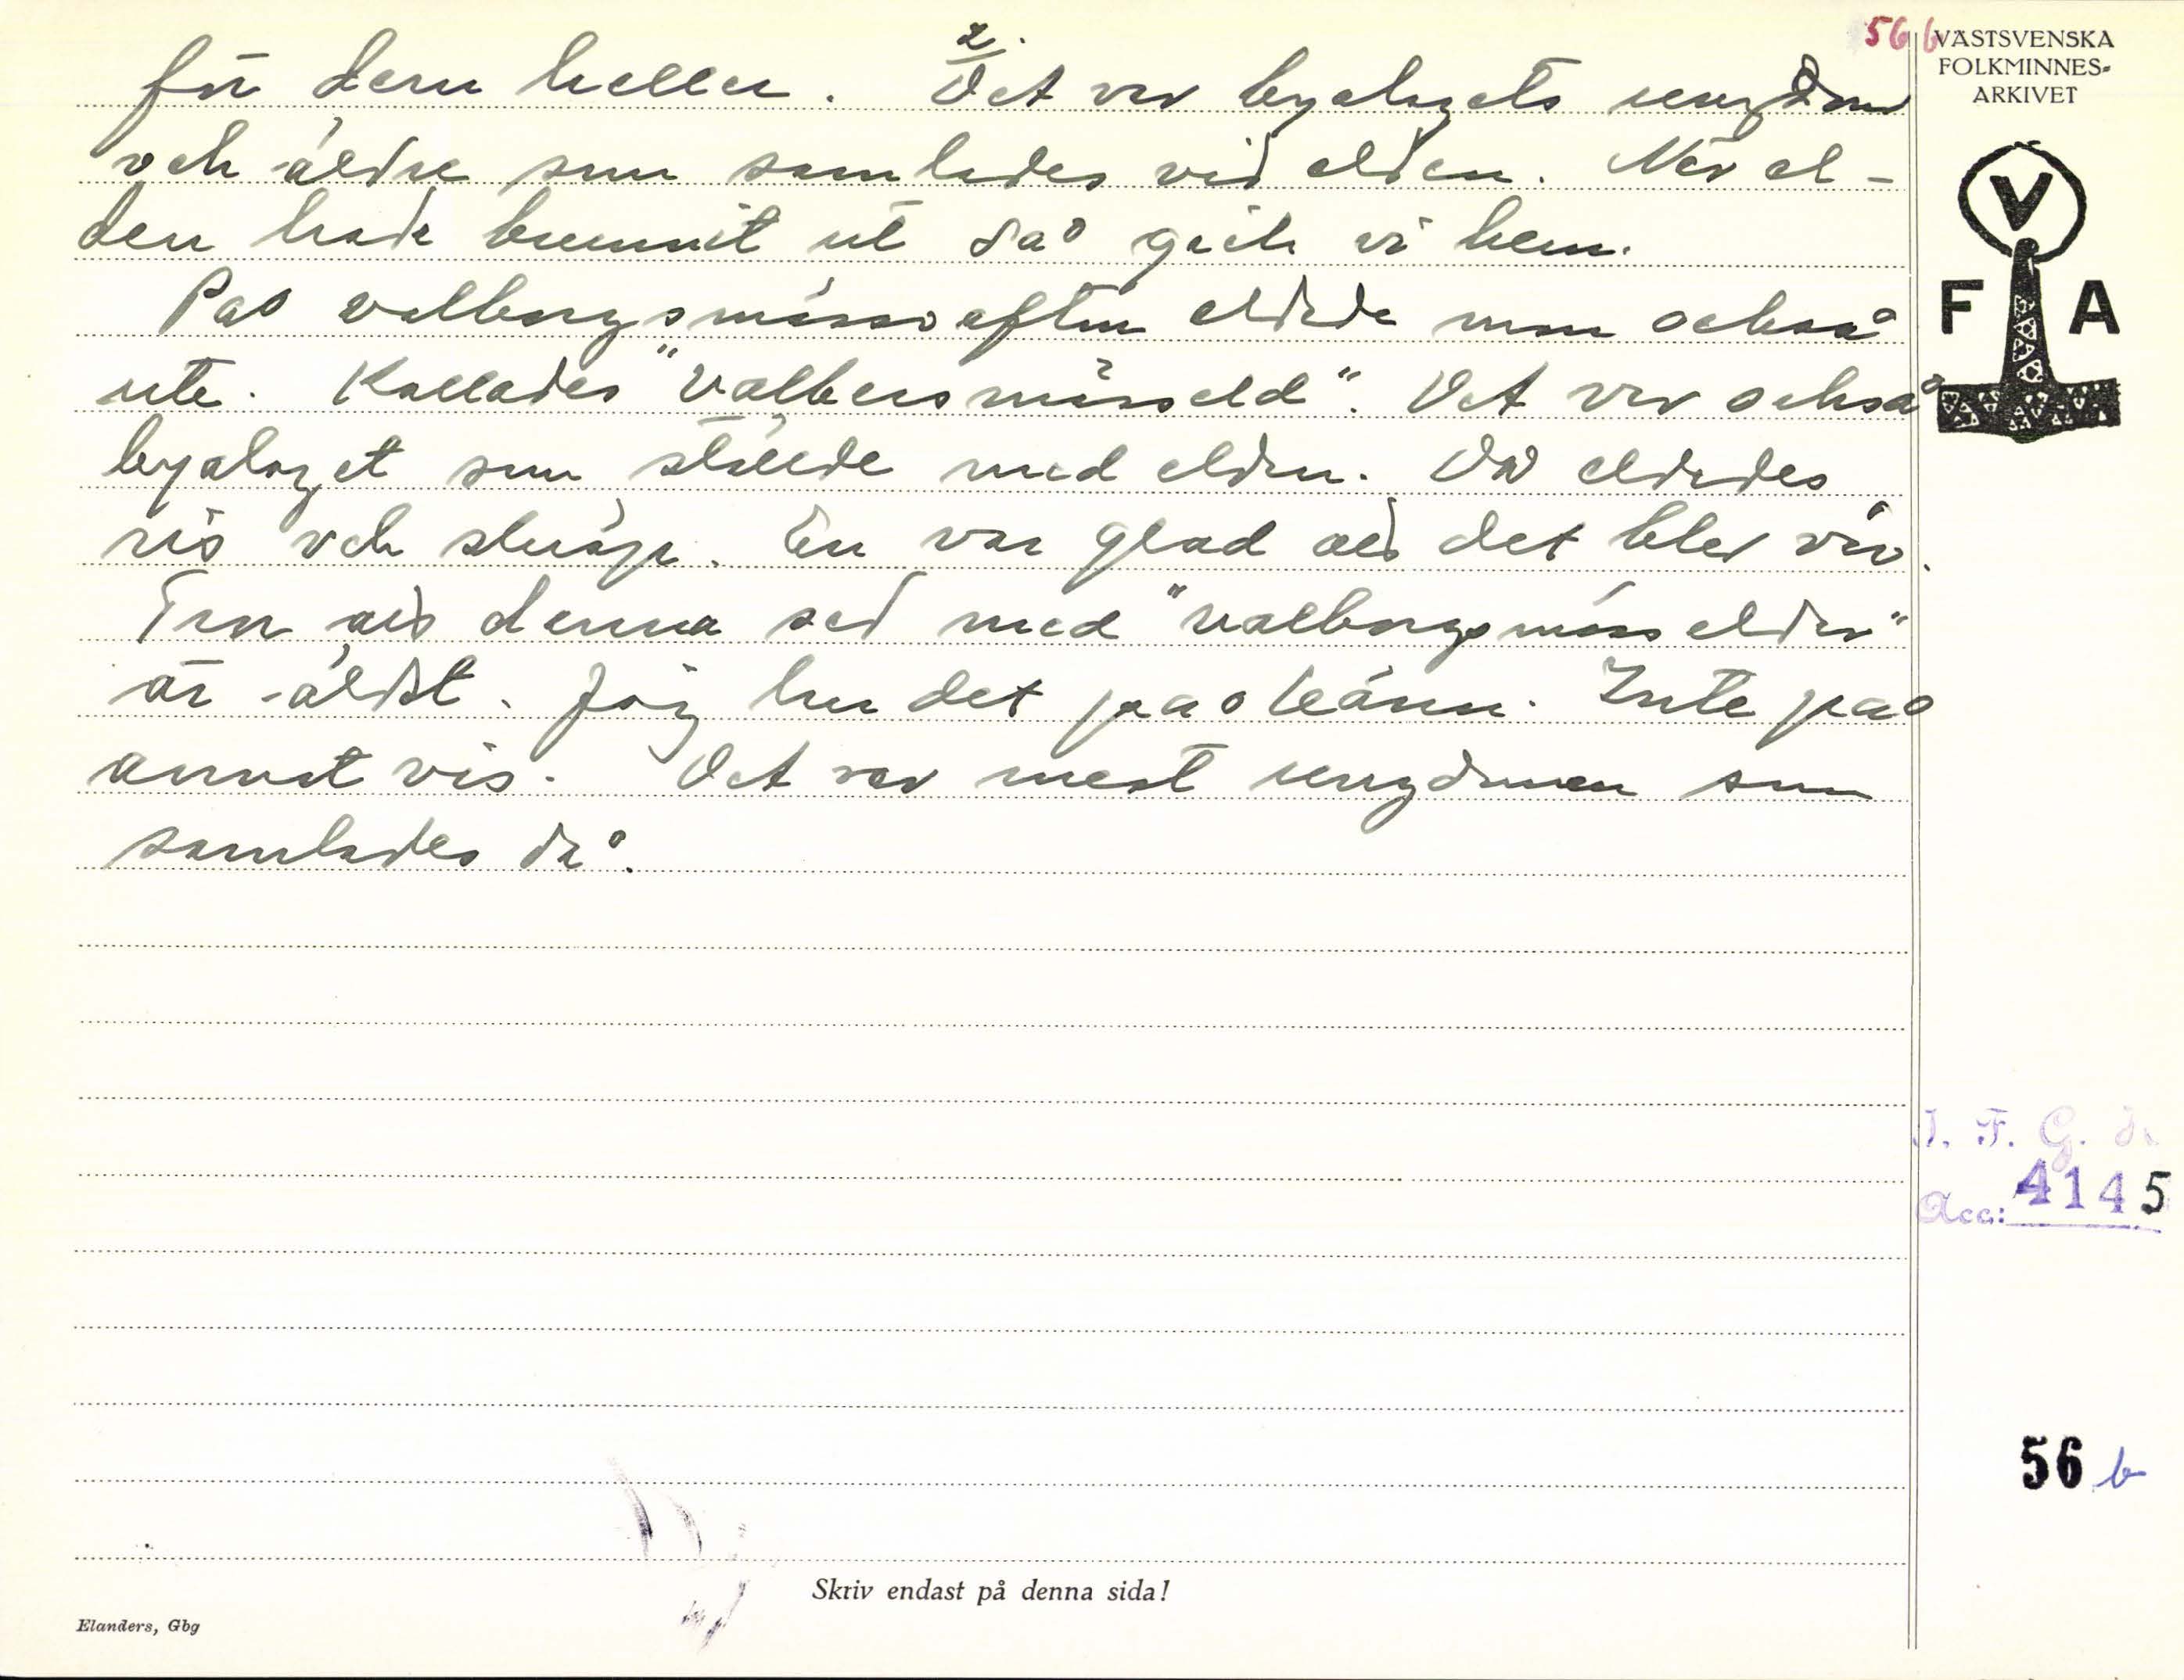 2.
56 b
för dem heller. Det var byalagets ungdom
och äldre som samlades vid elden. När el-
den hade brunnit ut så gick vi hem.
På valborgsmässoafton eldade man också
ute. Kallades "Valbersmässeld". Det var också
byalaget som ställde med elden. Då eldades
ris och skräp. En var glad att det blev vår.
Tror att denna sed med "valborgsmässeldar"
är äldst. Jag har det på känn. Inte på
annat vis. Det var mest ungdomen som
samlades då.
VÄSTSVENSKA
FOLKMINNES-
ARKIVET
V
F A
I. F. G. H.
Acc: 4145
56 b
Skriv endast på denna sida!
Elanders, Gbg